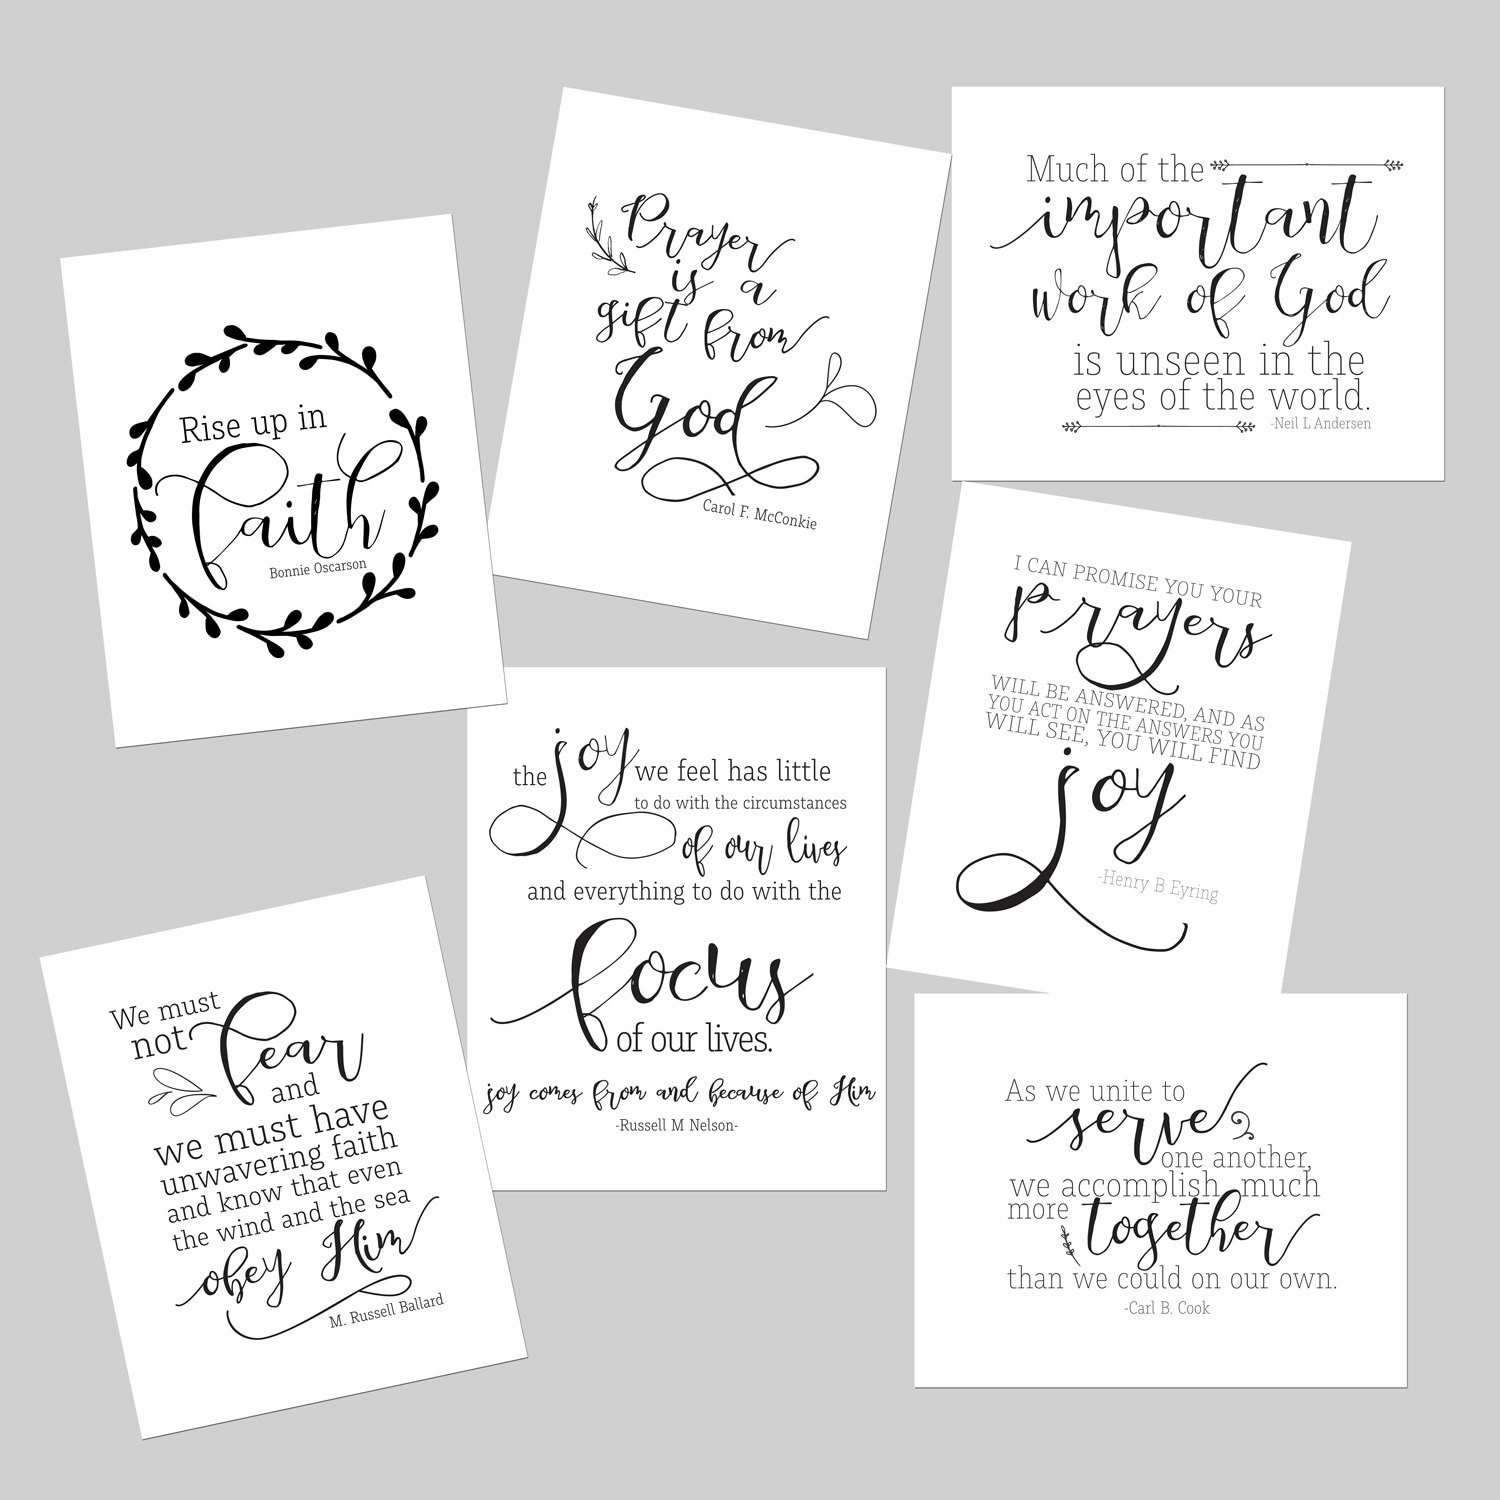 Rise up in
faith
Bonnie Oscarson
Prayer
is a
gift from
God
Carol F. McConkie
Much of the
important
work of God
is unseen in the
eyes of the world.
-Neil L Andersen
I CAN PROMISE YOU YOUR
prayers
WILL BE ANSWERED, AND AS
YOU ACT ON THE ANSWERS YOU
WILL SEE, YOU WILL FIND
joy
-Henry B Eyring
the joy we feel has little
to do with the circumstances
of our lives
and everything to do with the
focus
of our lives.
joy comes from and because of Him
-Russell M Nelson-
We must
not fear
and
we must have
unwavering faith
and know that even
the wind and the sea
obey Him
M. Russell Ballard
As we unite to
serve
one another,
we accomplish much
more together
than we could on our own.
-Carl B. Cook